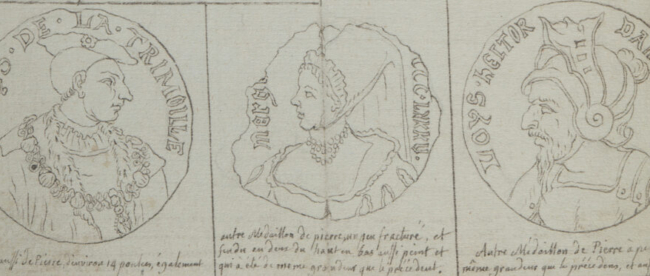 O · DE · LA · TRIMOULLE
VOYS · HEITOR DA
aussi de Pierre d'environ 14 pouces, également
autre Médaillon de pierre, un peu fracturé, et
fendu en deux du haut en bas aussi peint et
qui a été de meme grandeur que le precedent.
Autre Médaillon de Pierre
même grandeur que le précédent, et